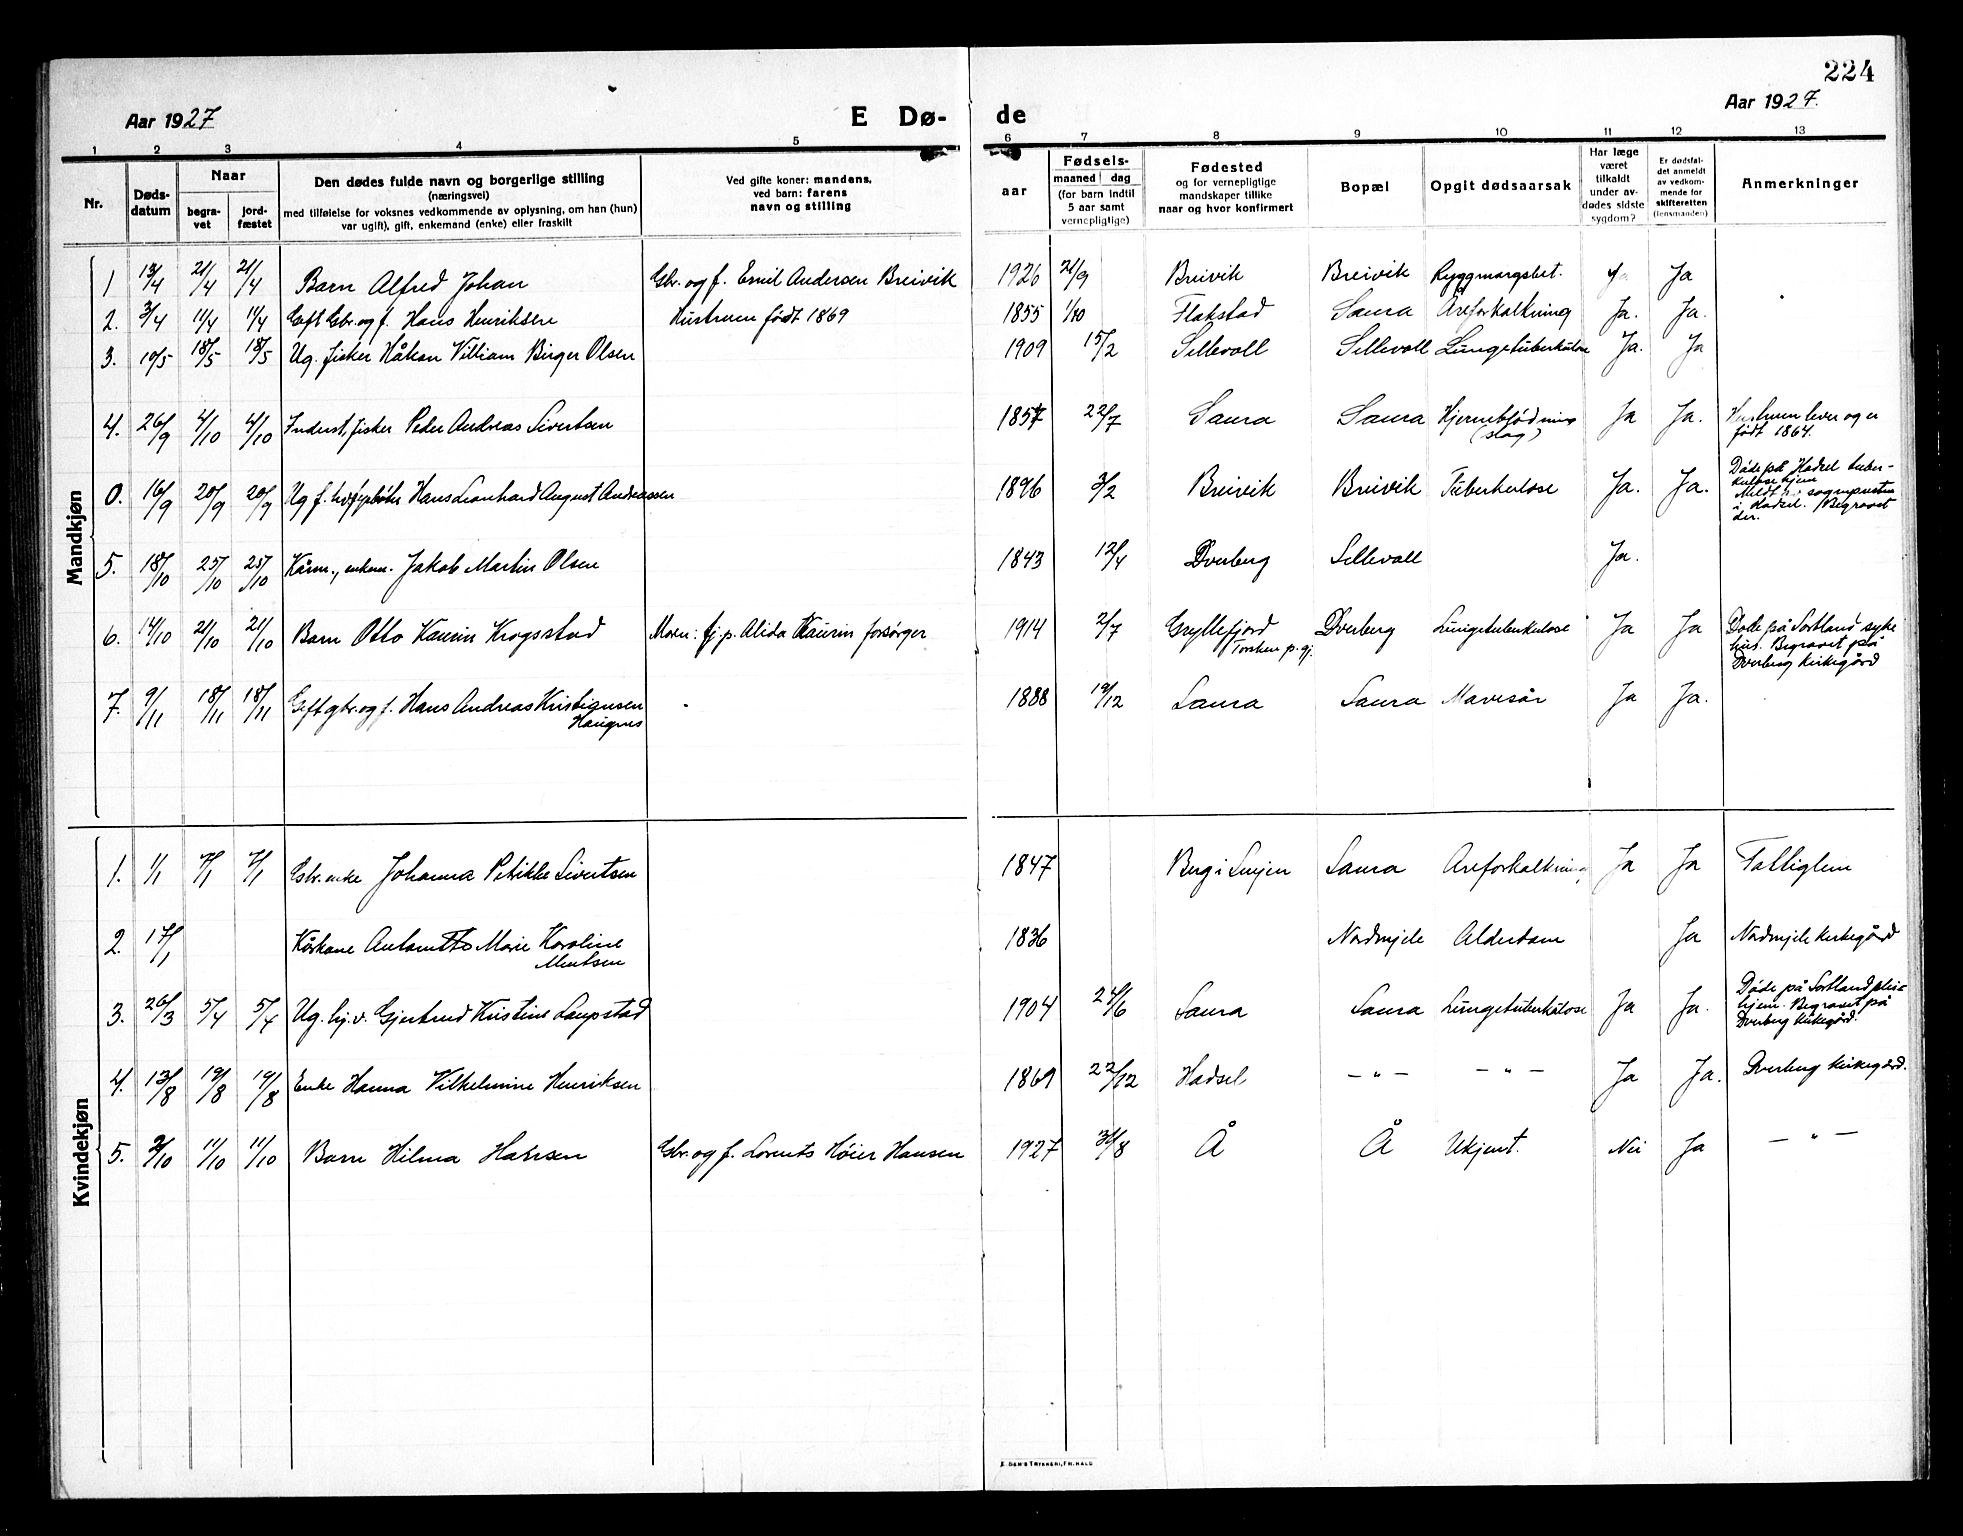 224
Aar 1927
E Dø-
de
Aar 1927.
1 2 3 4 5 6 7 8 9 10 11 12 13
Nr.
Døds-
datum
Naar
begra-
vet
jord-
fæstet
Den dødes fulde navn og borgerlige stilling
(næringsvei)
med tilføielse for voksnes vedkommende av oplysning, om han (hun)
var ugift), gift, enkemand (enke) eller fraskilt
Ved gifte koner: mandens,
ved barn: farens
navn og stilling
aar
Fødsels-
maaned dag
(for barn indtil
5 aar samt
vernepligtige)
Fødested
og for vernepligtige
mandskaper tillike
naar og hvor konfirmert
Bopæl
Opgit dødsaarsak
Har læge
været
tilkaldt
under av-
dødes sidste
sygdom?
Er dødsfal-
det anmeldt
av vedkom-
mende for
skifteretten
(lensmanden)
Anmerkninger
Mandkjøn
1 13/4 21/4 21/4 Barn Alfred Johan Gbr. og f. Emil Andersen Breivik 1926 21/9 Breivik Breivik Ryggmargsbet. Ja
2. 3/4 11/4 11/4 Gift Gbr. og f. Hans Henriksen Hustruen født 1869 1855 1/10 Flakstad Saura Åreforkalkning Ja. Ja.
3. 10/5 18/5 18/5 Ug. fisker Håkon Villiam Birger Olsen 1909 15/2 Sellevoll Sellevoll Lungetuberkulose Ja. Ja
4. 26/9 4/10 4/10 Inderst, fisker Peder Andreas Sivertsen 1857 22/7 Saura Saura Hjerneblødning
(slag) Ja Ja. Hustruen lever og er
født 1864.
0. 16/9 20/9 20/9 Ug f. Hans Leonhard August Andreassen 1896 3/2 Breivik Breivik Tuberkulose Ja. Ja. Døde på Hadsel tuber-
kulosehjem
Meldt sogneprsten
i Hadsel. Begravet
der.
5. 18/10 25/10 25/10 Kårm., enkem. Jakob Martin Olsen 1843 12/4 Dverberg Sellevoll Ja.
6. 14/10 21/10 21/10 Barn Otto Kaurin Krogstad Moren: tj. p. Alida Kaurin forsørger 1914 2/7 Gryllefjord
Torsken p. gj. Dverberg Lungetuberkulose Ja Ja Døde på Sortland syke
hus. Begravet på
Dverberg kirkegård
7. 9/11 18/11 18/11 Gift gbr. og f. Hans Andreas Kristiansen
Haugnes 1888 19/12 Saura Saura Mavesår Ja Ja.
Kvindekjøn
1. 1/1 7/1 7/1 Gbr. enke Johanna Petrikke Sivertsen 1847 Berg i Senjen Saura Åreforkalkning Ja Ja Fattiglem
2. 17/1 Kårkone Marie Karoline
1836 Nordmjele Alderdom Ja Nordmjele kirkegård
3. 26/3 5/4 5/4 Ug. hj.v. Gjertrud Kristine Laupstad 1904 24/6 Saura Saura Lungetuberkulose Ja Ja. Døde på Sortland pleie
hjem. Begravet på
Dverberg kirkegård.
4. 13/8 19/8 19/8 Enke Hanna Vilhelmine Henriksen 1869 22/12 Hadsel — „ — — „ — Ja Ja. Dverberg kirkegård.
5. 2/10 11/10 11/10 Barn Hilma Hansen Gbr. og f. Lorents Høier Hansen 1927 30/8 Å Å Ukjent. Nei Ja — „ —